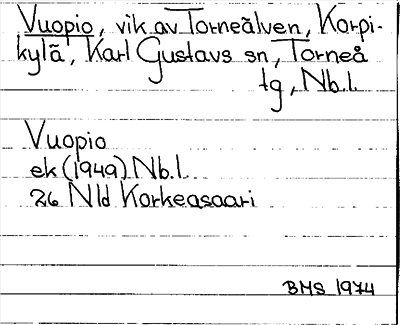 Vuopio, vik av Torneälven, Korpi-
kylä, Karl Gustavs sn, Torneå
tg, Nb.l.
Vuopio
ek (1949) Nb.l.
26 Nld Korkeasaari
BMS 1974